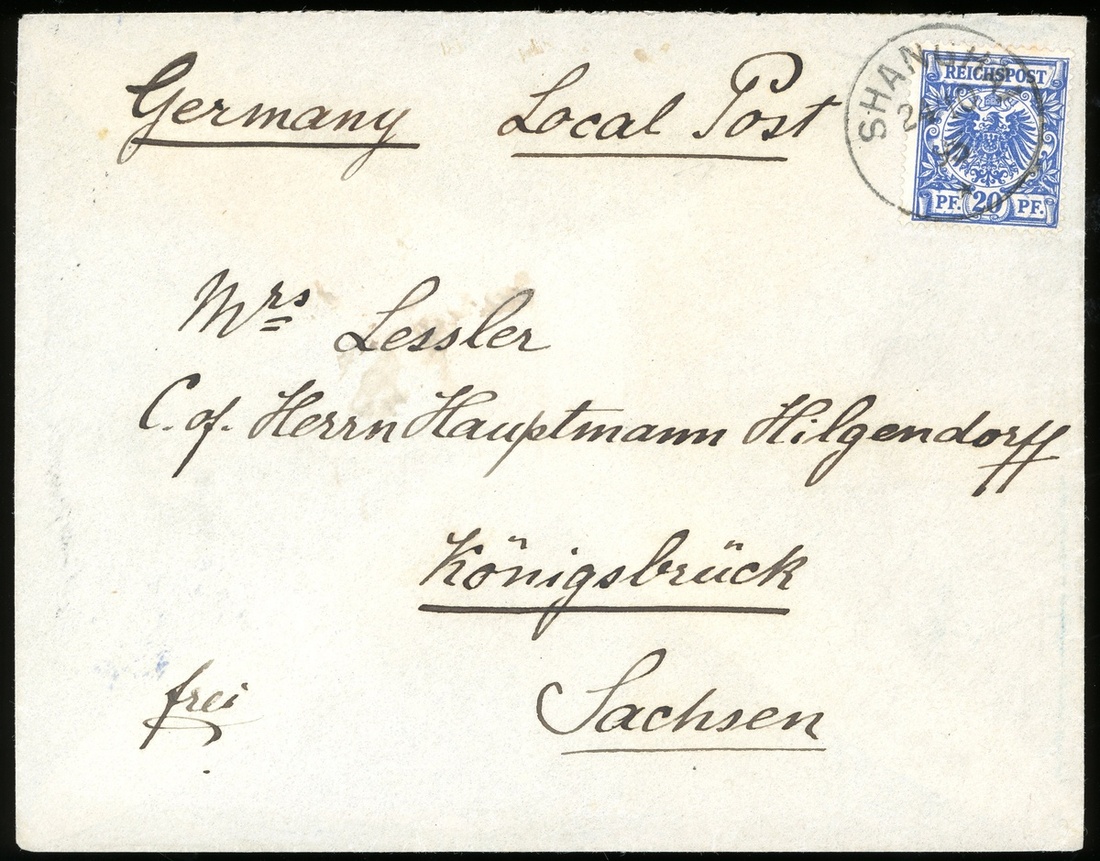 Germany Local Post
SHANGHAI
REICHSPOST
PF. 20 PF.
Mrs Lessler
C. of. Herrn Hauptmann Hilgendorff
Königsbrück
frei Sachsen